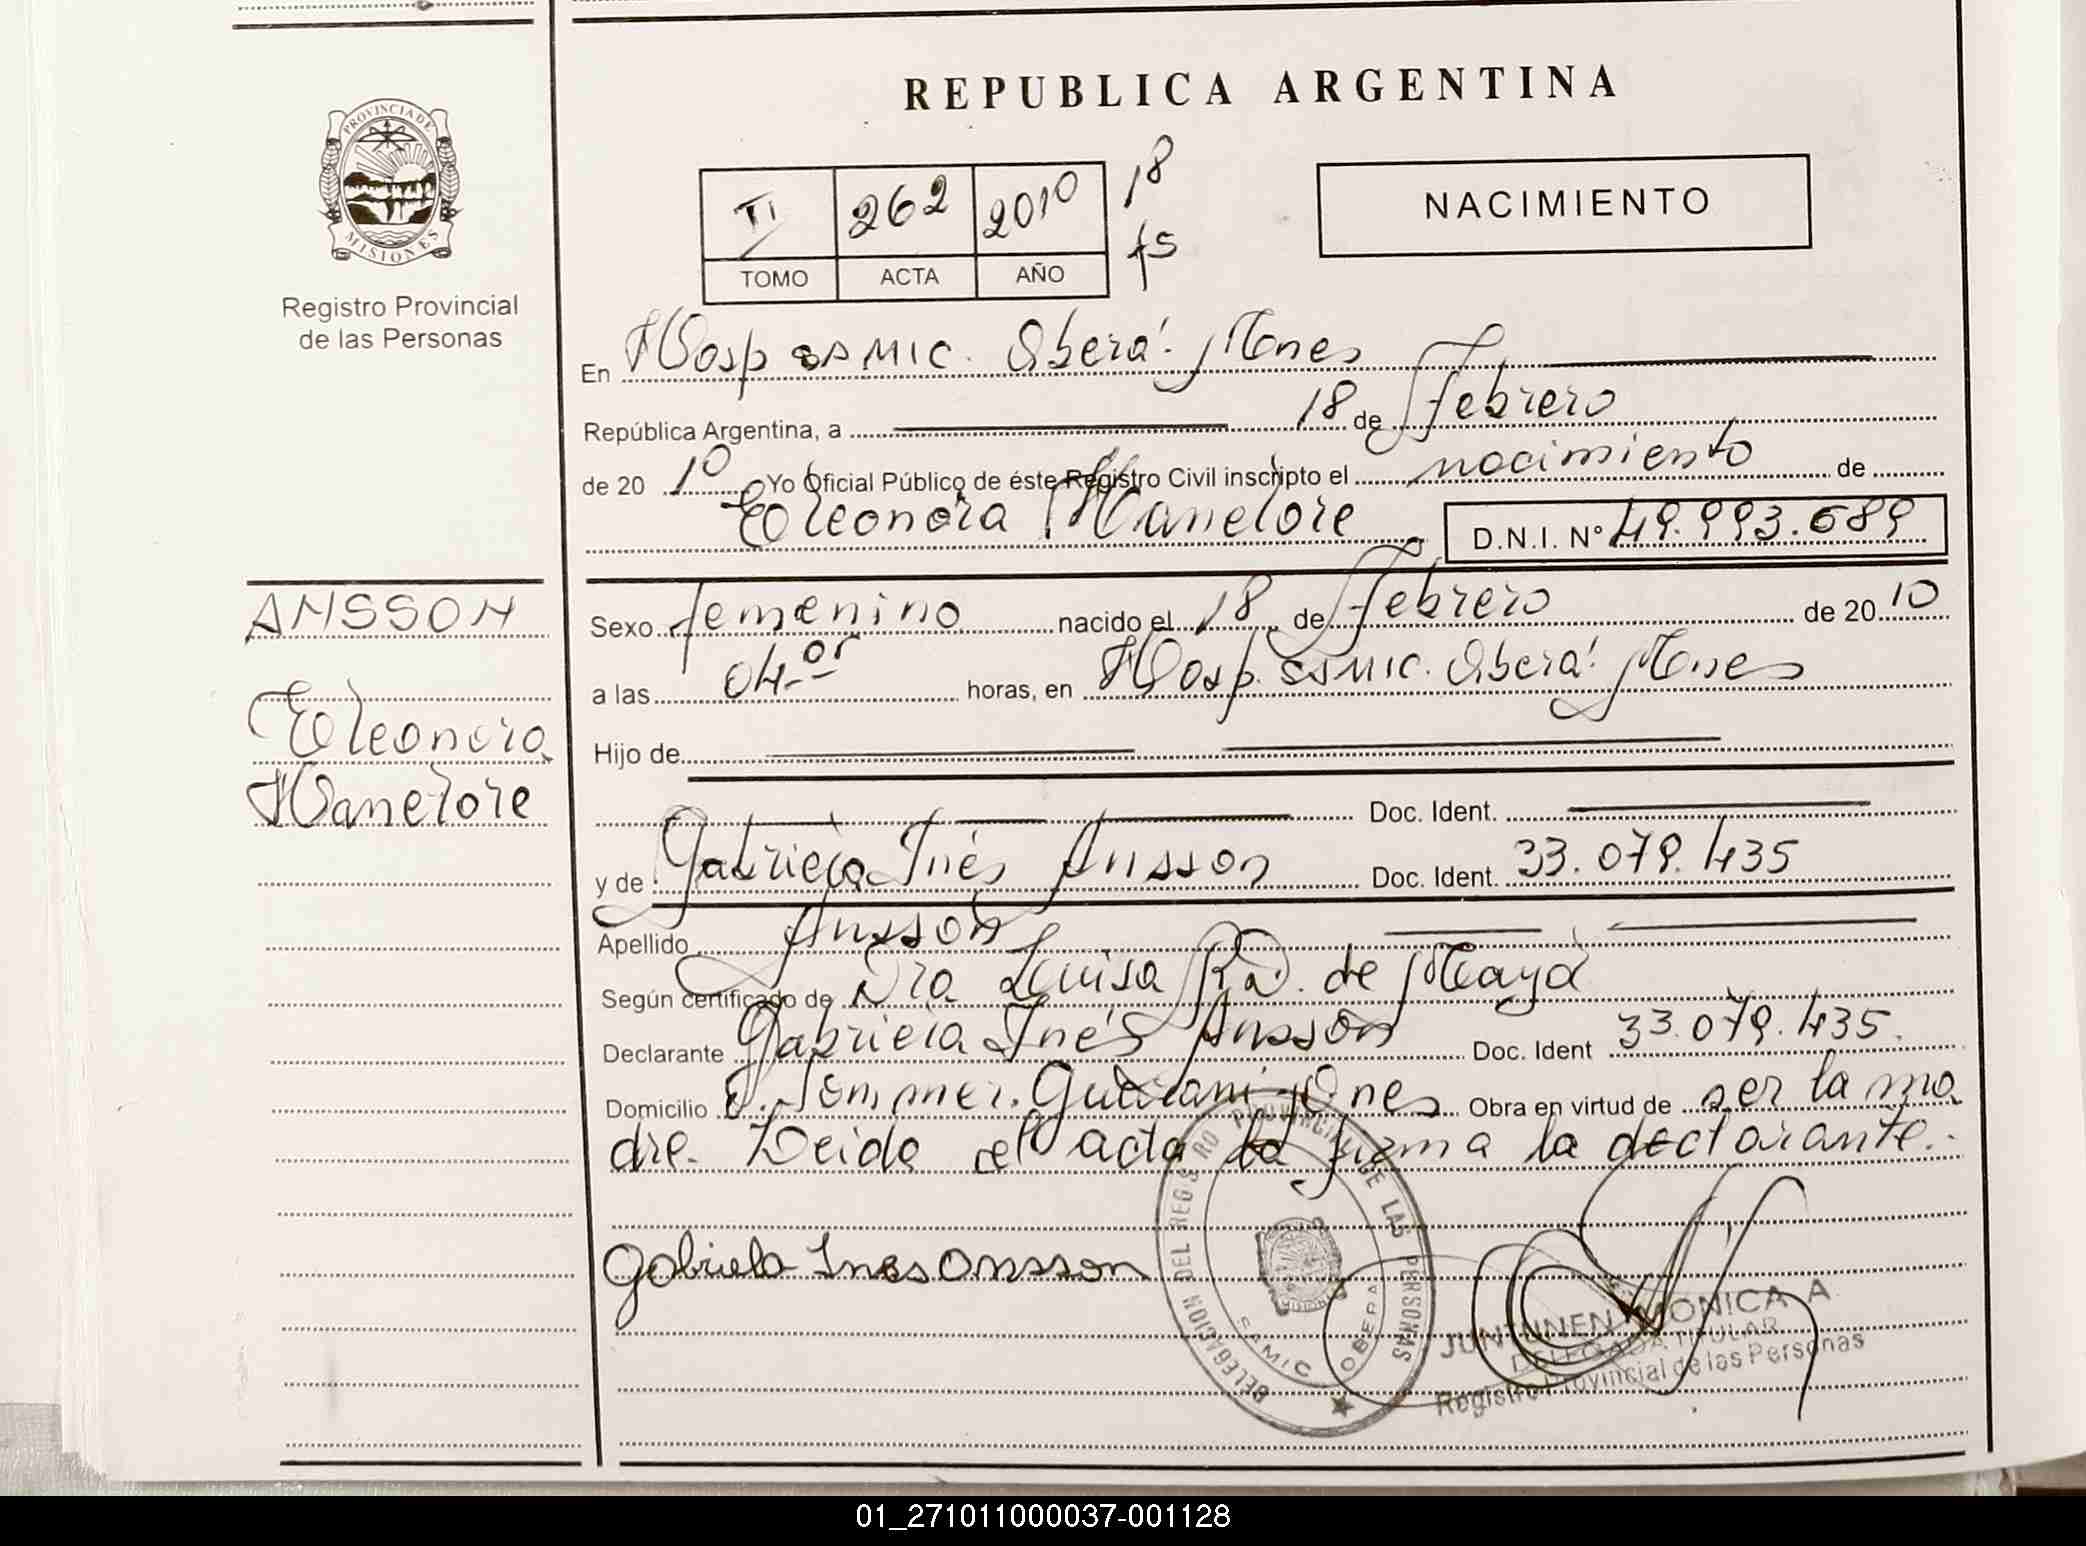 REPUBLICA ARGENTINA
PROVINCIA DE MISIONES
Registro Provincial
de las Personas
II 262 2010 18
fs
TOMO ACTA AÑO
NACIMIENTO
En Hosp SAMIC. Oberá. Mnes
República Argentina, a 18 de Febrero
de 2010 Yo Oficial Público de éste Registro Civil inscripto el nacimiento de
Eleonora Hanelore D.N.I. Nº 49.993.689
ANSSON
Eleonora
Hanelore
Sexo femenino nacido el 18 de Febrero de 2010
a las 04 horas, en Hosp. SAMIC. Oberá. Mnes
Hijo de
Doc. Ident.
y de Gabriela Inés Ansson Doc. Ident. 33.079.435
Apellido Ansson
Según certificado de Dra Luisa de Maya
Declarante Gabriela Inés Ansson Doc. Ident 33.079.435.
Domicilio Sommer. Guaraní Obra en virtud de ser la ma
dre. Leida el acta la firma la declarante.
Gabriela Ines Ansson
DELEGACION DEL REGISTRO PROVINCIAL DE LAS PERSONAS
SAMIC OBERA
JUNTUNEN MONICA A
DELEGADA TITULAR
Registro Provincial de las Personas
01_271011000037-001128